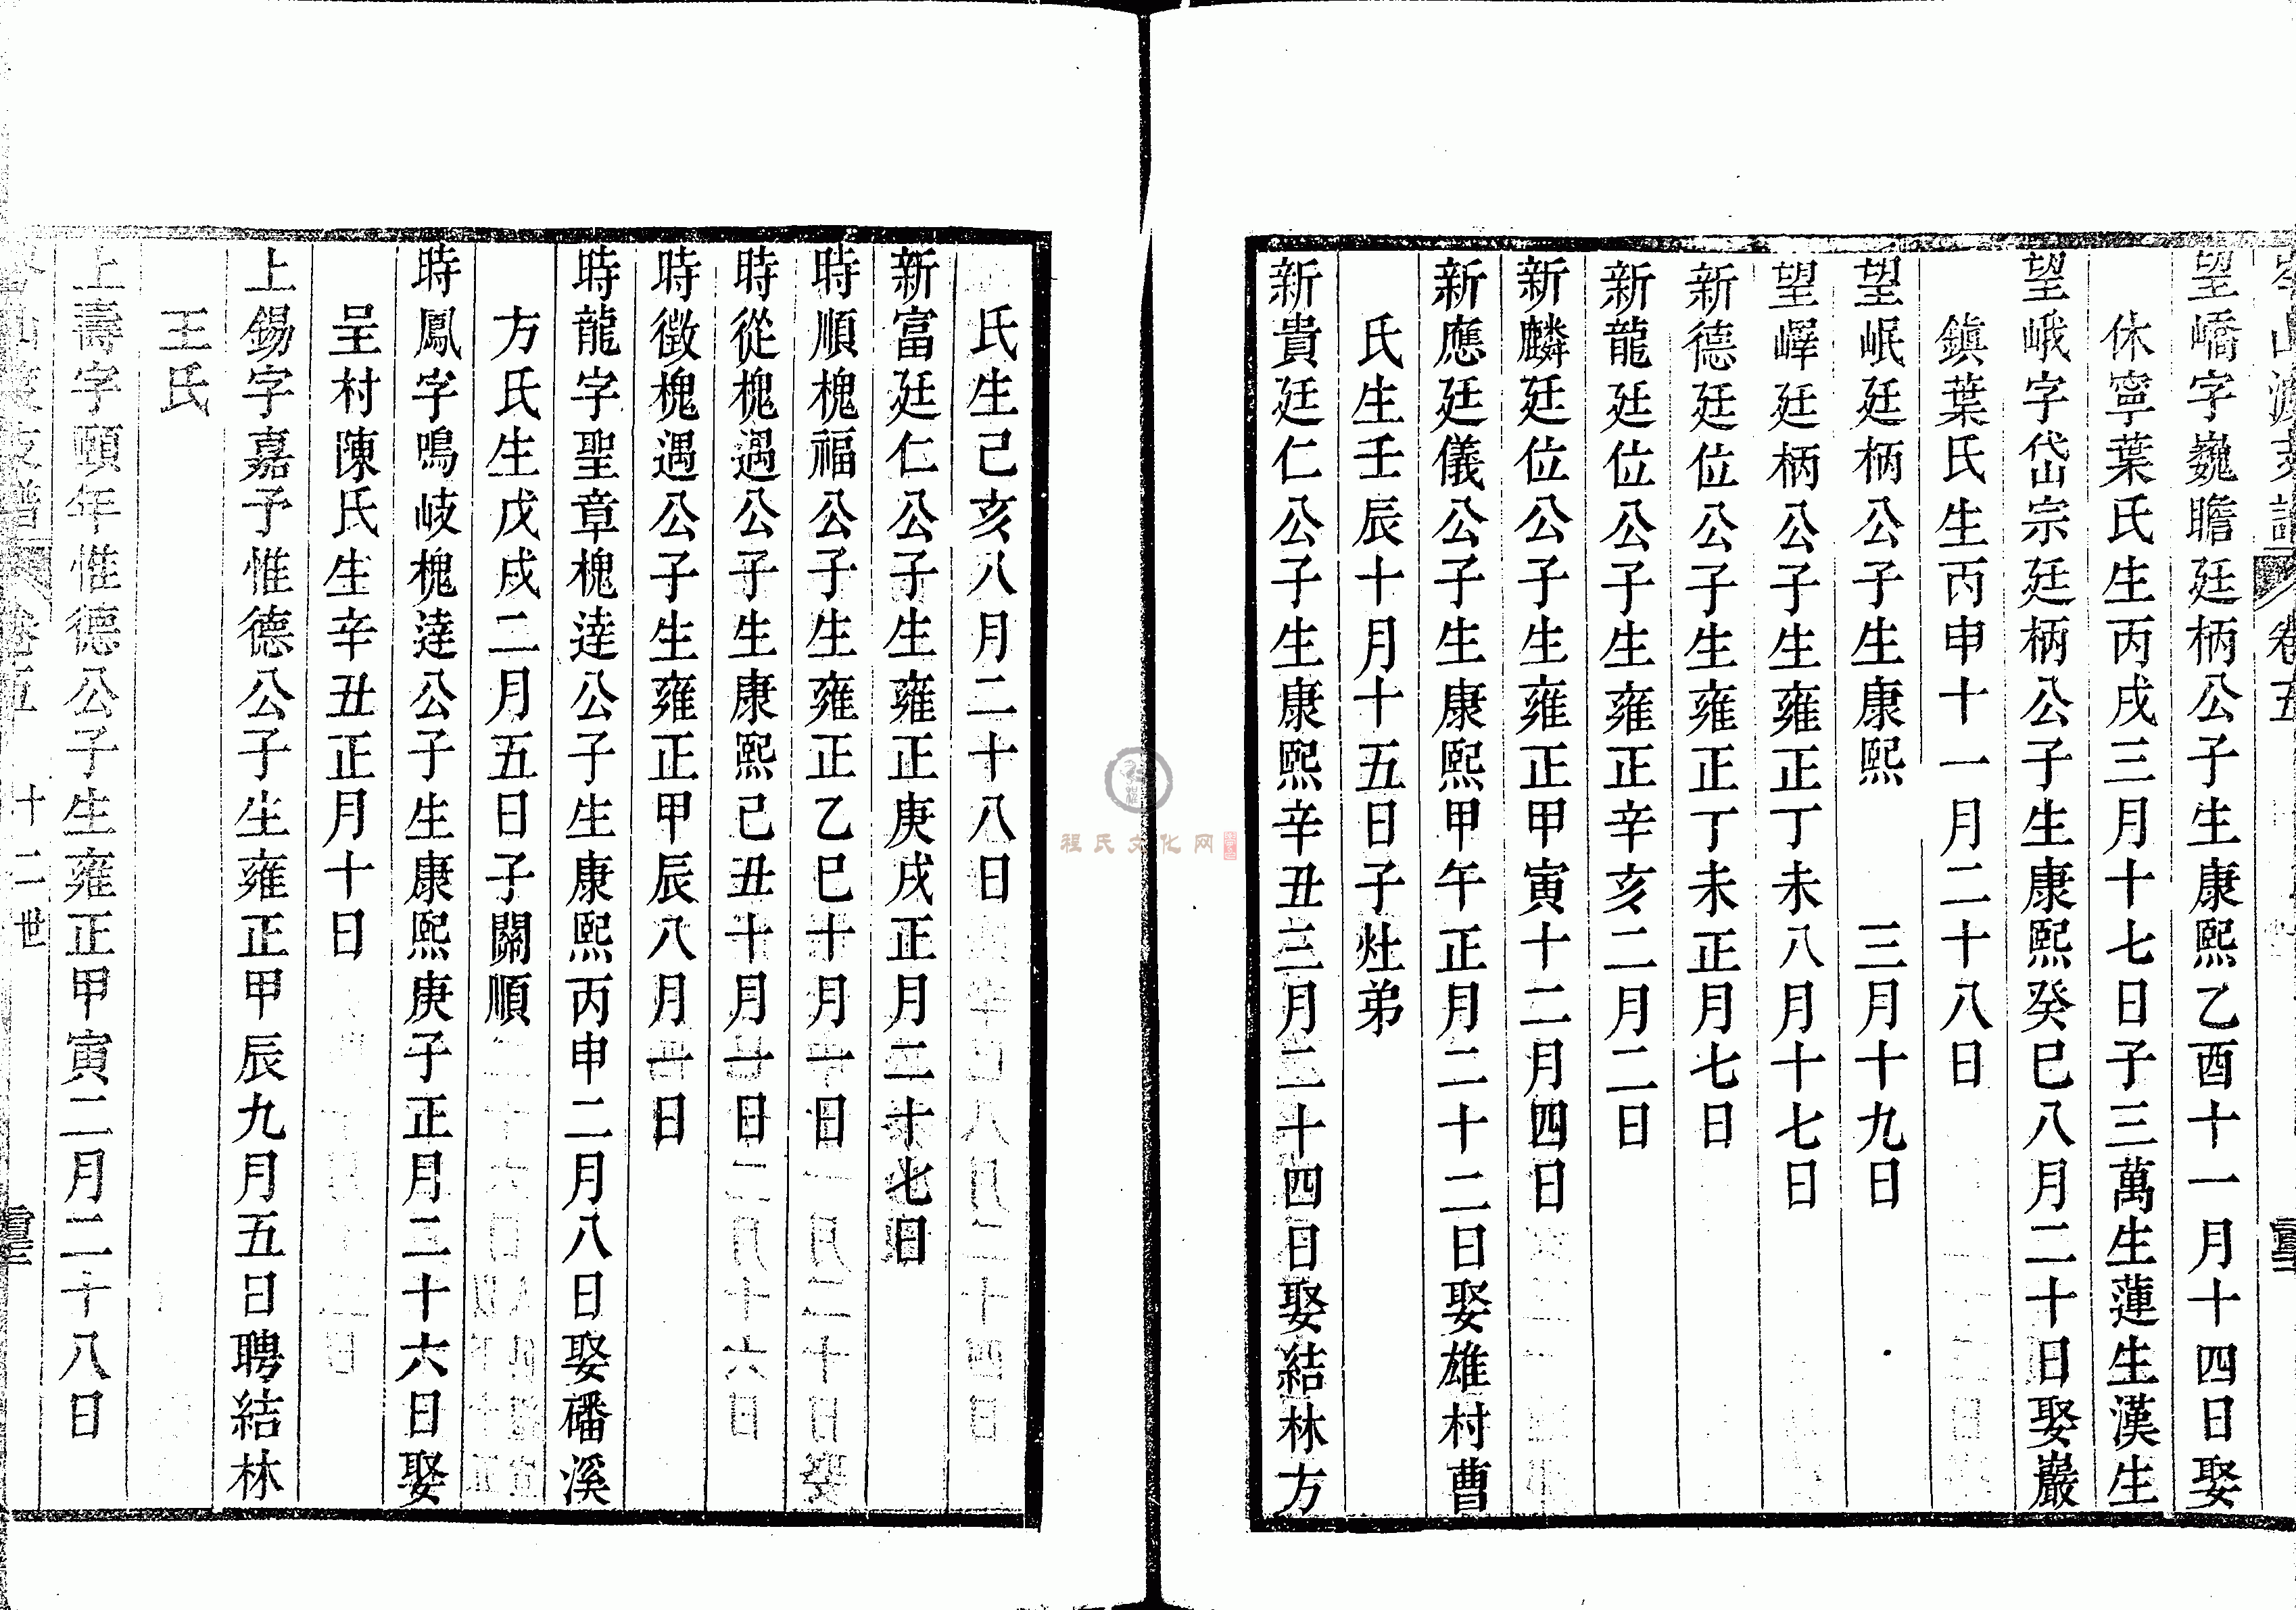 望嶠字巍瞻廷柄公子生康熙乙酉十一月十四日娶
休寧葉氏生丙戌三月十七日子三萬生蓮生漢生
望峨字岱宗廷柄公子生康熙癸巳八月二十日娶巖
鎮葉氏生丙申十一月二十八日
望岷廷柄公子生康熙 三月十九日
望嶧廷柄公子生雍正丁未八月十七日
新德廷位公子生雍正丁未正月七日
新龍廷位公子生雍正辛亥二月二日
新麟廷位公子生雍正甲寅十二月四日
新應廷儀公子生康熙甲午正月二十二日娶雄村曹
氏生壬辰十月十五日子灶弟
新貴廷仁公子生康熙辛丑三月二十四日娶結林方
氏生己亥八月二十八日
新富廷仁公子生雍正庚戌正月二十七日
時順槐福公子生雍正乙巳十月一日
時從槐遇公子生康熙己丑十月一日
時徵槐遇公子生雍正甲辰八月一日
時龍字聖章槐達公子生康熙丙申二月八日娶磻溪
方氏生戊戌二月五日子關順
時鳳字鳴岐槐達公子生康熙庚子正月二十六日娶
呈村陳氏生辛丑正月十日
上錫字嘉予惟德公子生雍正甲辰九月五日聘結林
王氏
上壽字頤年惟德公子生雍正甲寅二月二十八日
卷五 十二世
程氏文化网